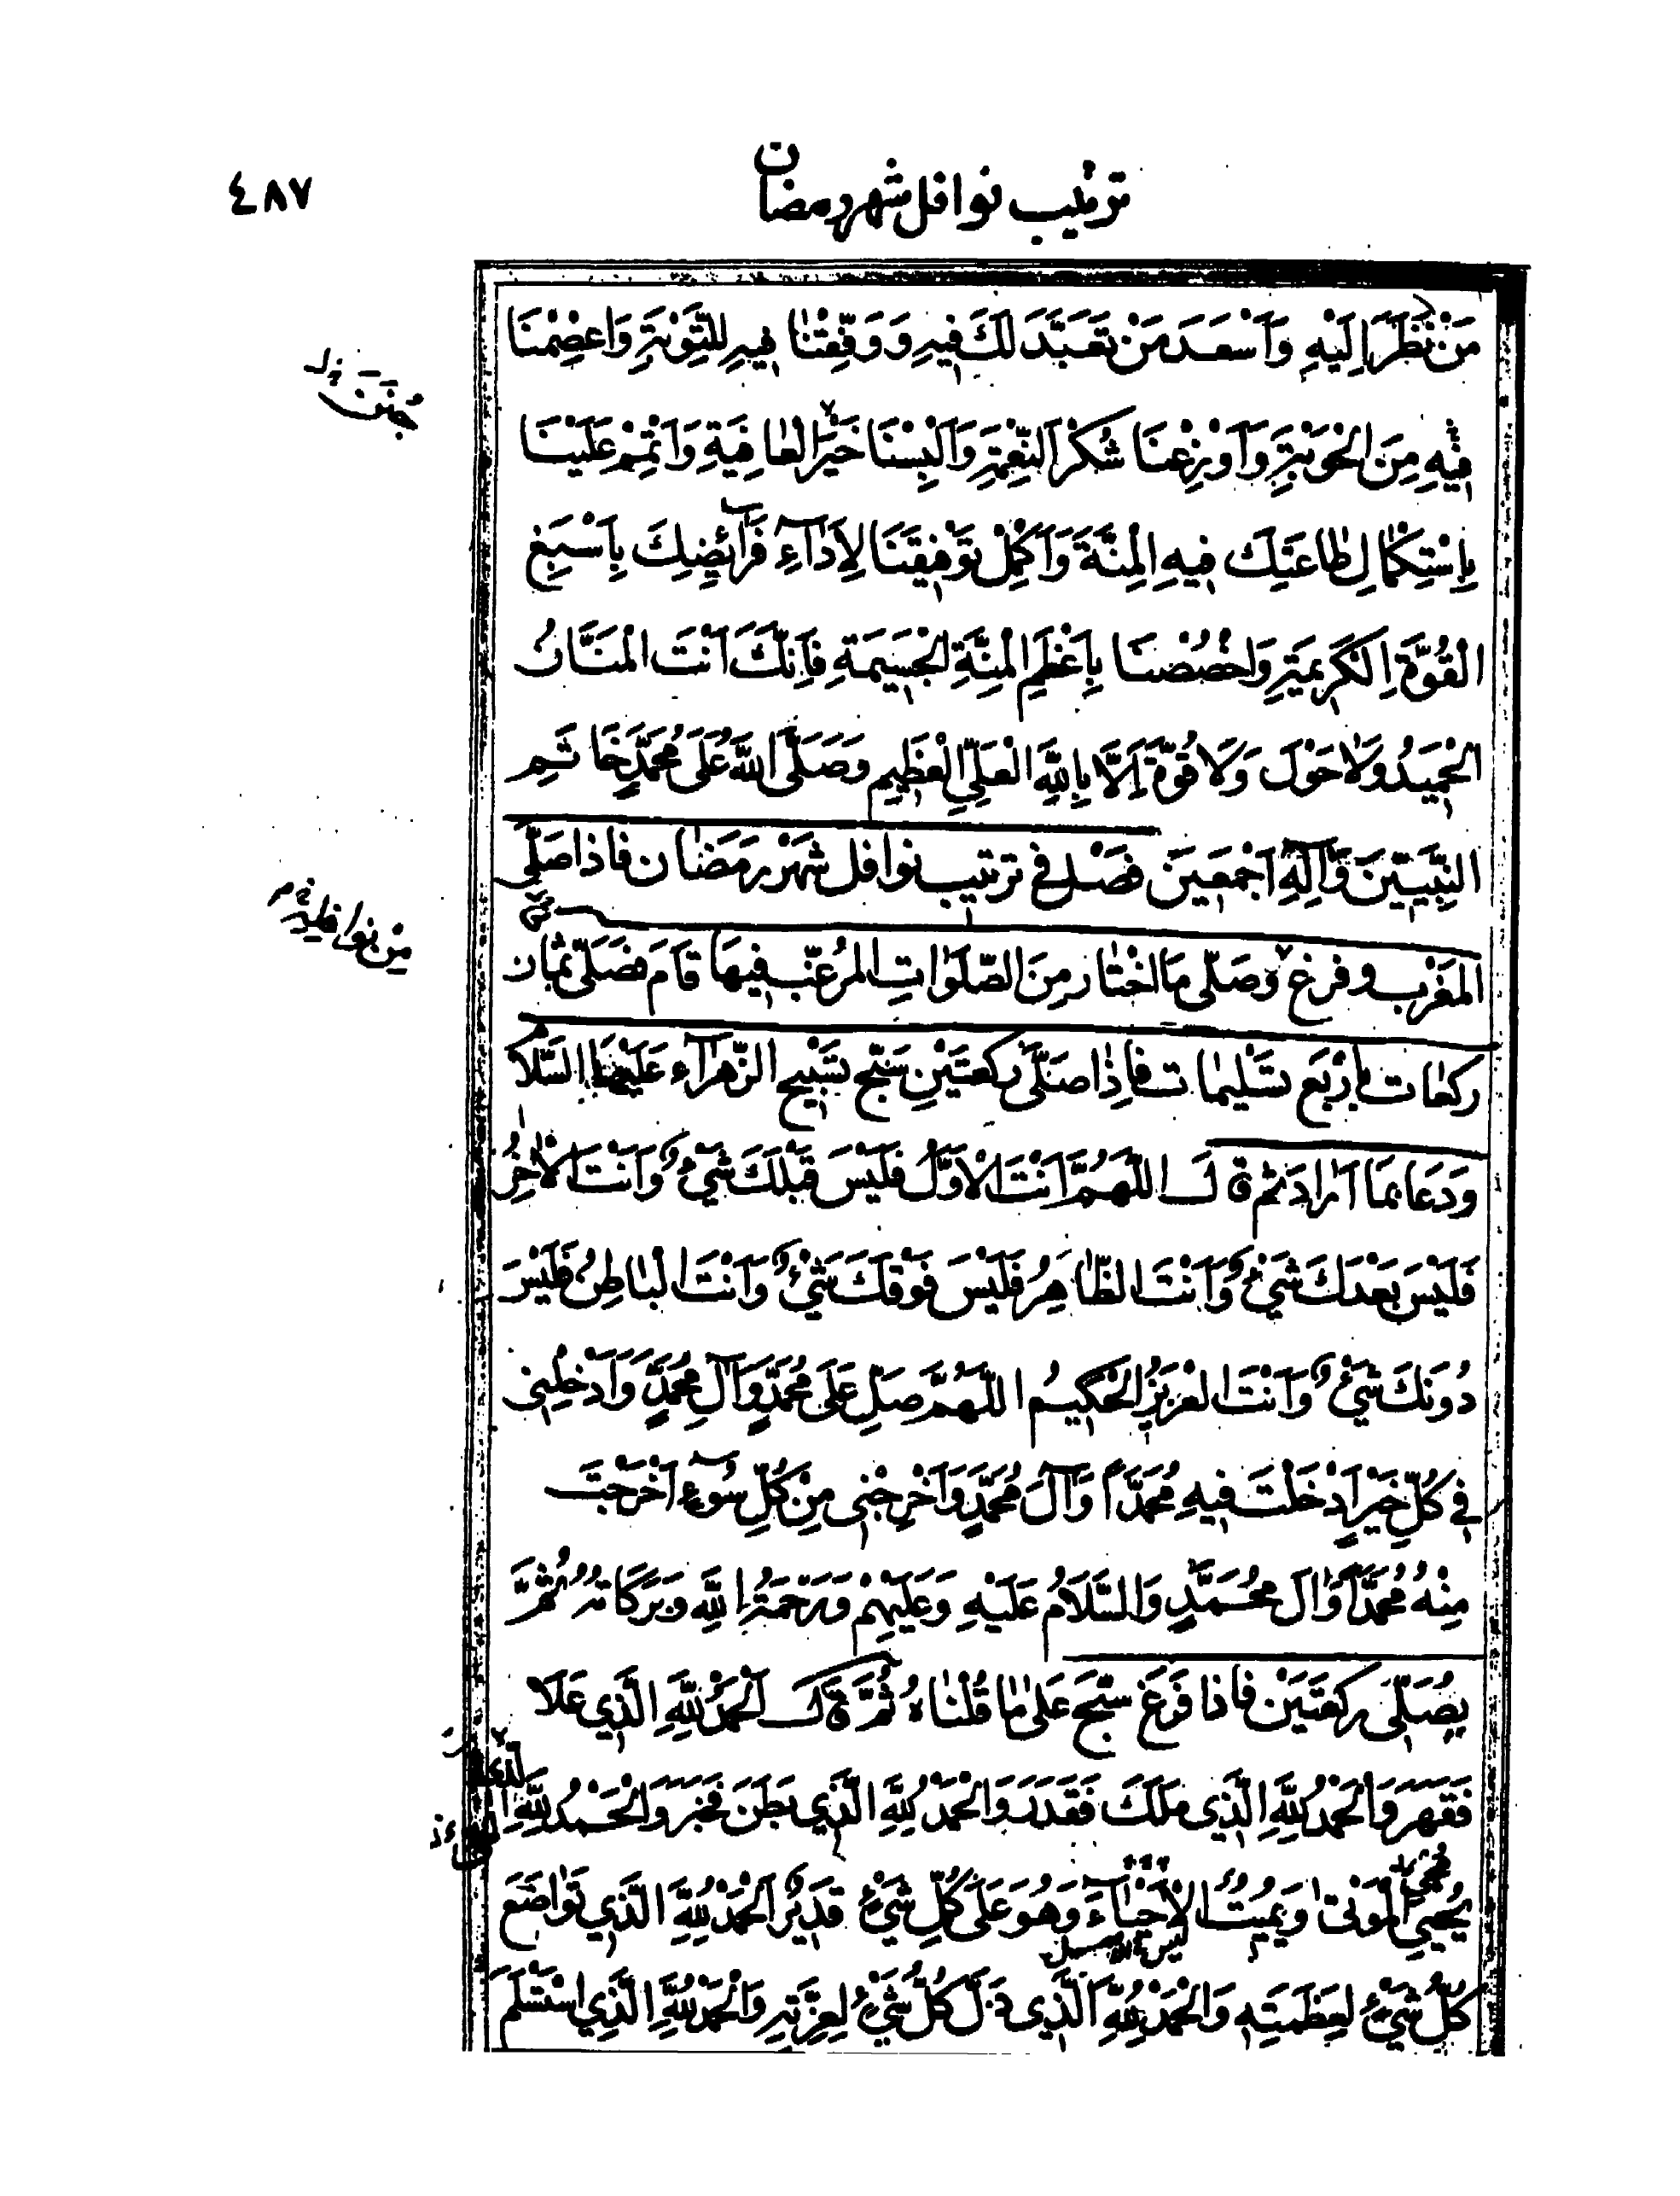 ترتيب نوافل شهر رمضان
٤٨٧
مَنْ نَظَرَ اِلَيْهِ وَاَسْعَدَ مَنْ تَعَبَّدَ لَكَ فِيهِ وَوَفِّقْنَا فِيهِ لِلتَّوْبَةِ وَاعْصِمْنَا
فِيْهِ مِنَ الْحَوْبَةِ وَاَوْزِعْنَا شُكْرَ النِّعْمَةِ وَاَلْبِسْنَا خَيْرَ الْعَافِيَةِ وَاَتْمِمْ عَلَيْنَا
بِاسْتِكْمَالِ طَاعَتِكَ فِيهِ الْمِنَّةَ وَاَكْمِلْ تَوْفِيقَنَا لِاَدَآءِ فَرَآئِضِكَ بِاَسْبَغِ
الْقُوَّةِ الْكَرِيمَةِ وَاخْصُصْنَا بِاَعْظَمِ الْمِنَّةِ الْجَسِيمَةِ فَاِنَّكَ اَنْتَ الْمَنَّانُ
الْحَمِيدُ وَلَا حَوْلَ وَلَا قُوَّةَ اِلَّا بِاللهِ الْعَلِيِّ الْعَظِيمِ وَصَلَّى اللهُ عَلَى مُحَمَّدٍ خَاتَمِ
النَّبِيِّينَ وَآلِهِ اَجْمَعِينَ فَصْل فِي ترتيب نوافل شَهْرِ رَمَضَان فاذا صَلَّى
الْمَغْرِب و فرغ وَصَلَّى مَا اخْتَارَ مِنَ الصَّلَوَاتِ الْمُرَغَّبِ فِيهَا قَامَ فَصَلَّى ثَمَان
من نوافله
رَكعَات بِاَرْبَعِ تَسْلِيمَات فَاِذَا صَلَّى رَكعَتَيْنِ سَبَّحَ تَسْبِيحَ الزَّهْرَآءِ عَلَيْهَا السَّلَام
وَدَعَا بِمَا اَرَادَ ثُمَّ قَالَ اَللّٰهُمَّ اَنْتَ الْاَوَّلُ فَلَيْسَ قَبْلَكَ شَيْءٌ وَاَنْتَ الْآخِرُ
فَلَيْسَ بَعْدَكَ شَيْءٌ وَاَنْتَ الظَّاهِرُ فَلَيْسَ فَوْقَكَ شَيْءٌ وَاَنْتَ الْبَاطِنُ فَلَيْسَ
دُونَكَ شَيْءٌ وَاَنْتَ الْعَزِيزُ الْحَكِيمُ اَللّٰهُمَّ صَلِّ عَلَى مُحَمَّدٍ وَآلِ مُحَمَّدٍ وَاَدْخِلْنِي
فِي كُلِّ خَيْرٍ اَدْخَلْتَ فِيهِ مُحَمَّدًا وَآلَ مُحَمَّدٍ وَاَخْرِجْنِي مِنْ كُلِّ سُوءٍ اَخْرَجْتَ
مِنْهُ مُحَمَّدًا وَآلَ مُحَمَّدٍ وَالسَّلَامُ عَلَيْهِ وَعَلَيْهِمْ وَرَحْمَةُ اللهِ وَبَرَكَاتُهُ ثُمَّ
يُصَلِّي رَكعَتَيْنِ فَاذا فَرَغَ سَبَّحَ عَلَى مَا قُلْنَاهُ ثُمَّ قَالَ اَلْحَمْدُ لِلّٰهِ الَّذِي عَلَا
فَقَهَرَ وَالْحَمْدُ لِلّٰهِ الَّذِي مَلَكَ فَقَدَرَ وَالْحَمْدُ لِلّٰهِ الَّذِي بَطَنَ فَخَبَرَ وَالْحَمْدُ لِلّٰهِ الَّذِي
يُحْيِي الْمَوْتَى وَيُمِيتُ الْاَحْيَآءَ وَهُوَ عَلَى كُلِّ شَيْءٍ قَدِيرٌ اَلْحَمْدُ لِلّٰهِ الَّذِي تَوَاضَعَ
كُلُّ شَيْءٍ لِعَظَمَتِهِ وَالْحَمْدُ لِلّٰهِ الَّذِي ذَلَّ كُلُّ شَيْءٍ لِعِزَّتِهِ وَالْحَمْدُ لِلّٰهِ الَّذِي اسْتَسْلَمَ